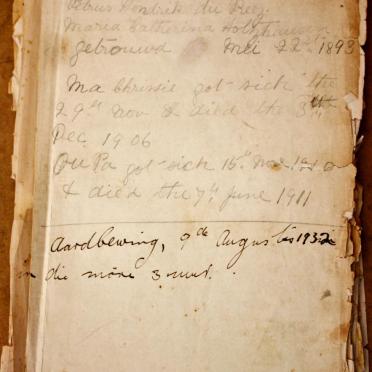 Petrus Hendrik du Preez
Maria Catherina Holtzhausen
getrouwd Mei 22e 1893
Ma Chrissie got sick the
29th Nov & died the 3th
Dec 1906
OuPa got sick 15th Nov. 1910
& died the 7th June 1911
Aardbewing, 9de Augustus 1932
in die môre 3 uur.